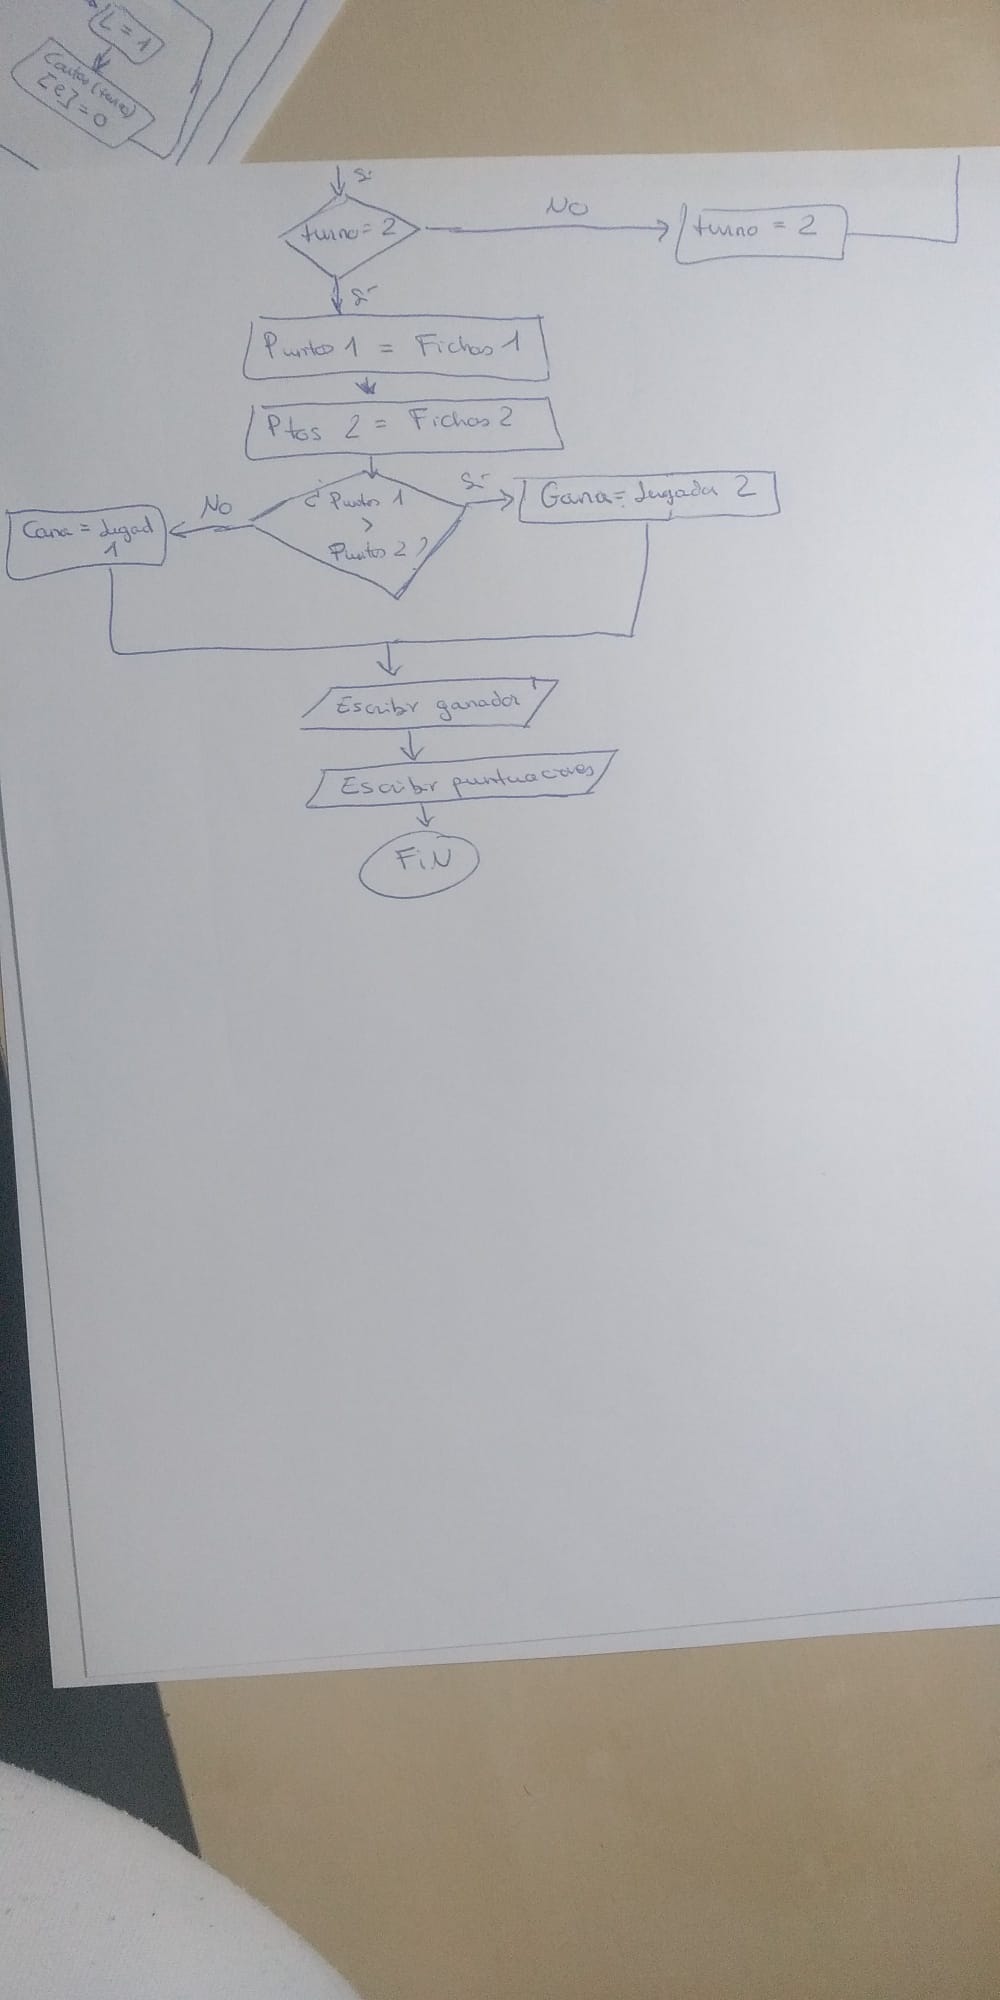 L = 1
[e] = 0
Sí
turno = 2
NO
turno = 2
Sí
Puntos 1 = Fichas 1
Ptos 2 = Fichas 2
¿ Puntos 1
>
Puntos 2 ?
Sí
Gana = Jugador 2
No
Gana = Jugad
1
Escribir ganador
Escribir puntuaciones
FiN